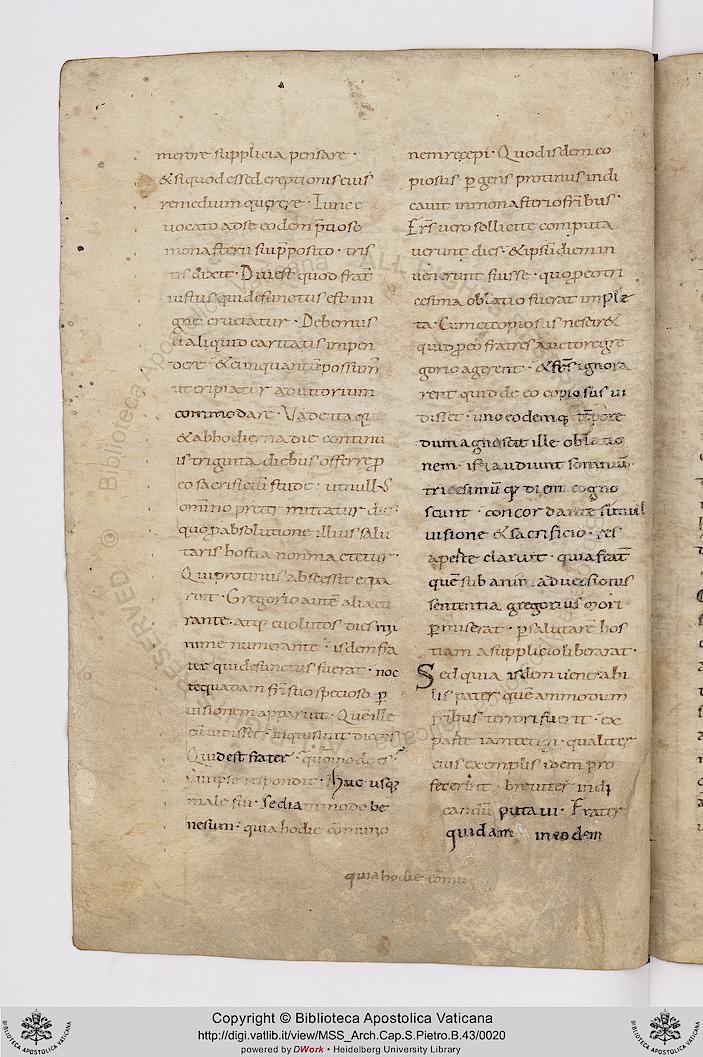 merore supplicia pensare ·
& si quod esset ereptionis eius
remedium querere · Tunc e
uocato ad se eodem p̄tioso
monasterii sui p̄posito · tris
tis dixit · Diu est quod frat̄
iustus qui defunctus est in
igne cruciatur · Debemus
ei aliquid caritatis inpen
dere · & eum quantū possum̄
ut eripiatur adiutorium
commodare · Vade itaque
& ab hodierna die continu
is triginta diebus offerre p̄
eo sacrificiū stude · ut null;
omīno pret mittatur dies
quo p̄ absolutione illius salu
taris hostia non mactetur ·
Qui protinus abscessit & pa
ruit · Gregorio autē alia cu
rante · atq; euolutos dies mi
nime numerante · isdem fra
ter qui defunctus fuerat · noc
te quadam fr̄i suo specioso p̄
uisionem apparuit · Quē ille
cū uidisset · inquisiuit dicens
Quid est frater · quōmodo es
Cui ipse respondit · Huc usq;
male fui · sed iam modo be
ne sum · quia hodie cōmunio
quia hodie cōmu
nem recepi · Quod isdem co
piosus p̄gens protinus indi
cauit in monasterio fr̄ibus ·
Fr̄s uero sollicite computa
uerunt dies · & ipsū diem in
uenerunt fuisse · quo p̄ eo tri
cesima oblatio fuerat imple
ta · Cumq; copiosus nescir&
quid p̄ eo fratres aut gre
gorio agerent · & fr̄s ignora
rent quid de eo copiosus ui
disset · uno eodemq; tēpore
dum agnoscit ille oblatio
nem · isti audiunt somnium
tricesimū q; diem cogno
scunt · concordante simul
uisione & sacrificio · res
aperte claruit · quia frat̄
quē sub animaduersionis
sententia gregorius mori
p̄miserat · p̄ salutarē hos
tiam a supplicio liberarat ·
Sed quia isdem uenerabi
lis pater quēammodum
fr̄ibus terrori fuerit · ex
parte iam tetigi · qualiter
eius exemplis idem pro
fecerint breuiter indi
candū putaui · Frater
quidam in eodem
Copyright © Biblioteca Apostolica Vaticana
http://digi.vatlib.it/view/MSS_Arch.Cap.S.Pietro.B.43/0020
powered by DWork • Heidelberg University Library